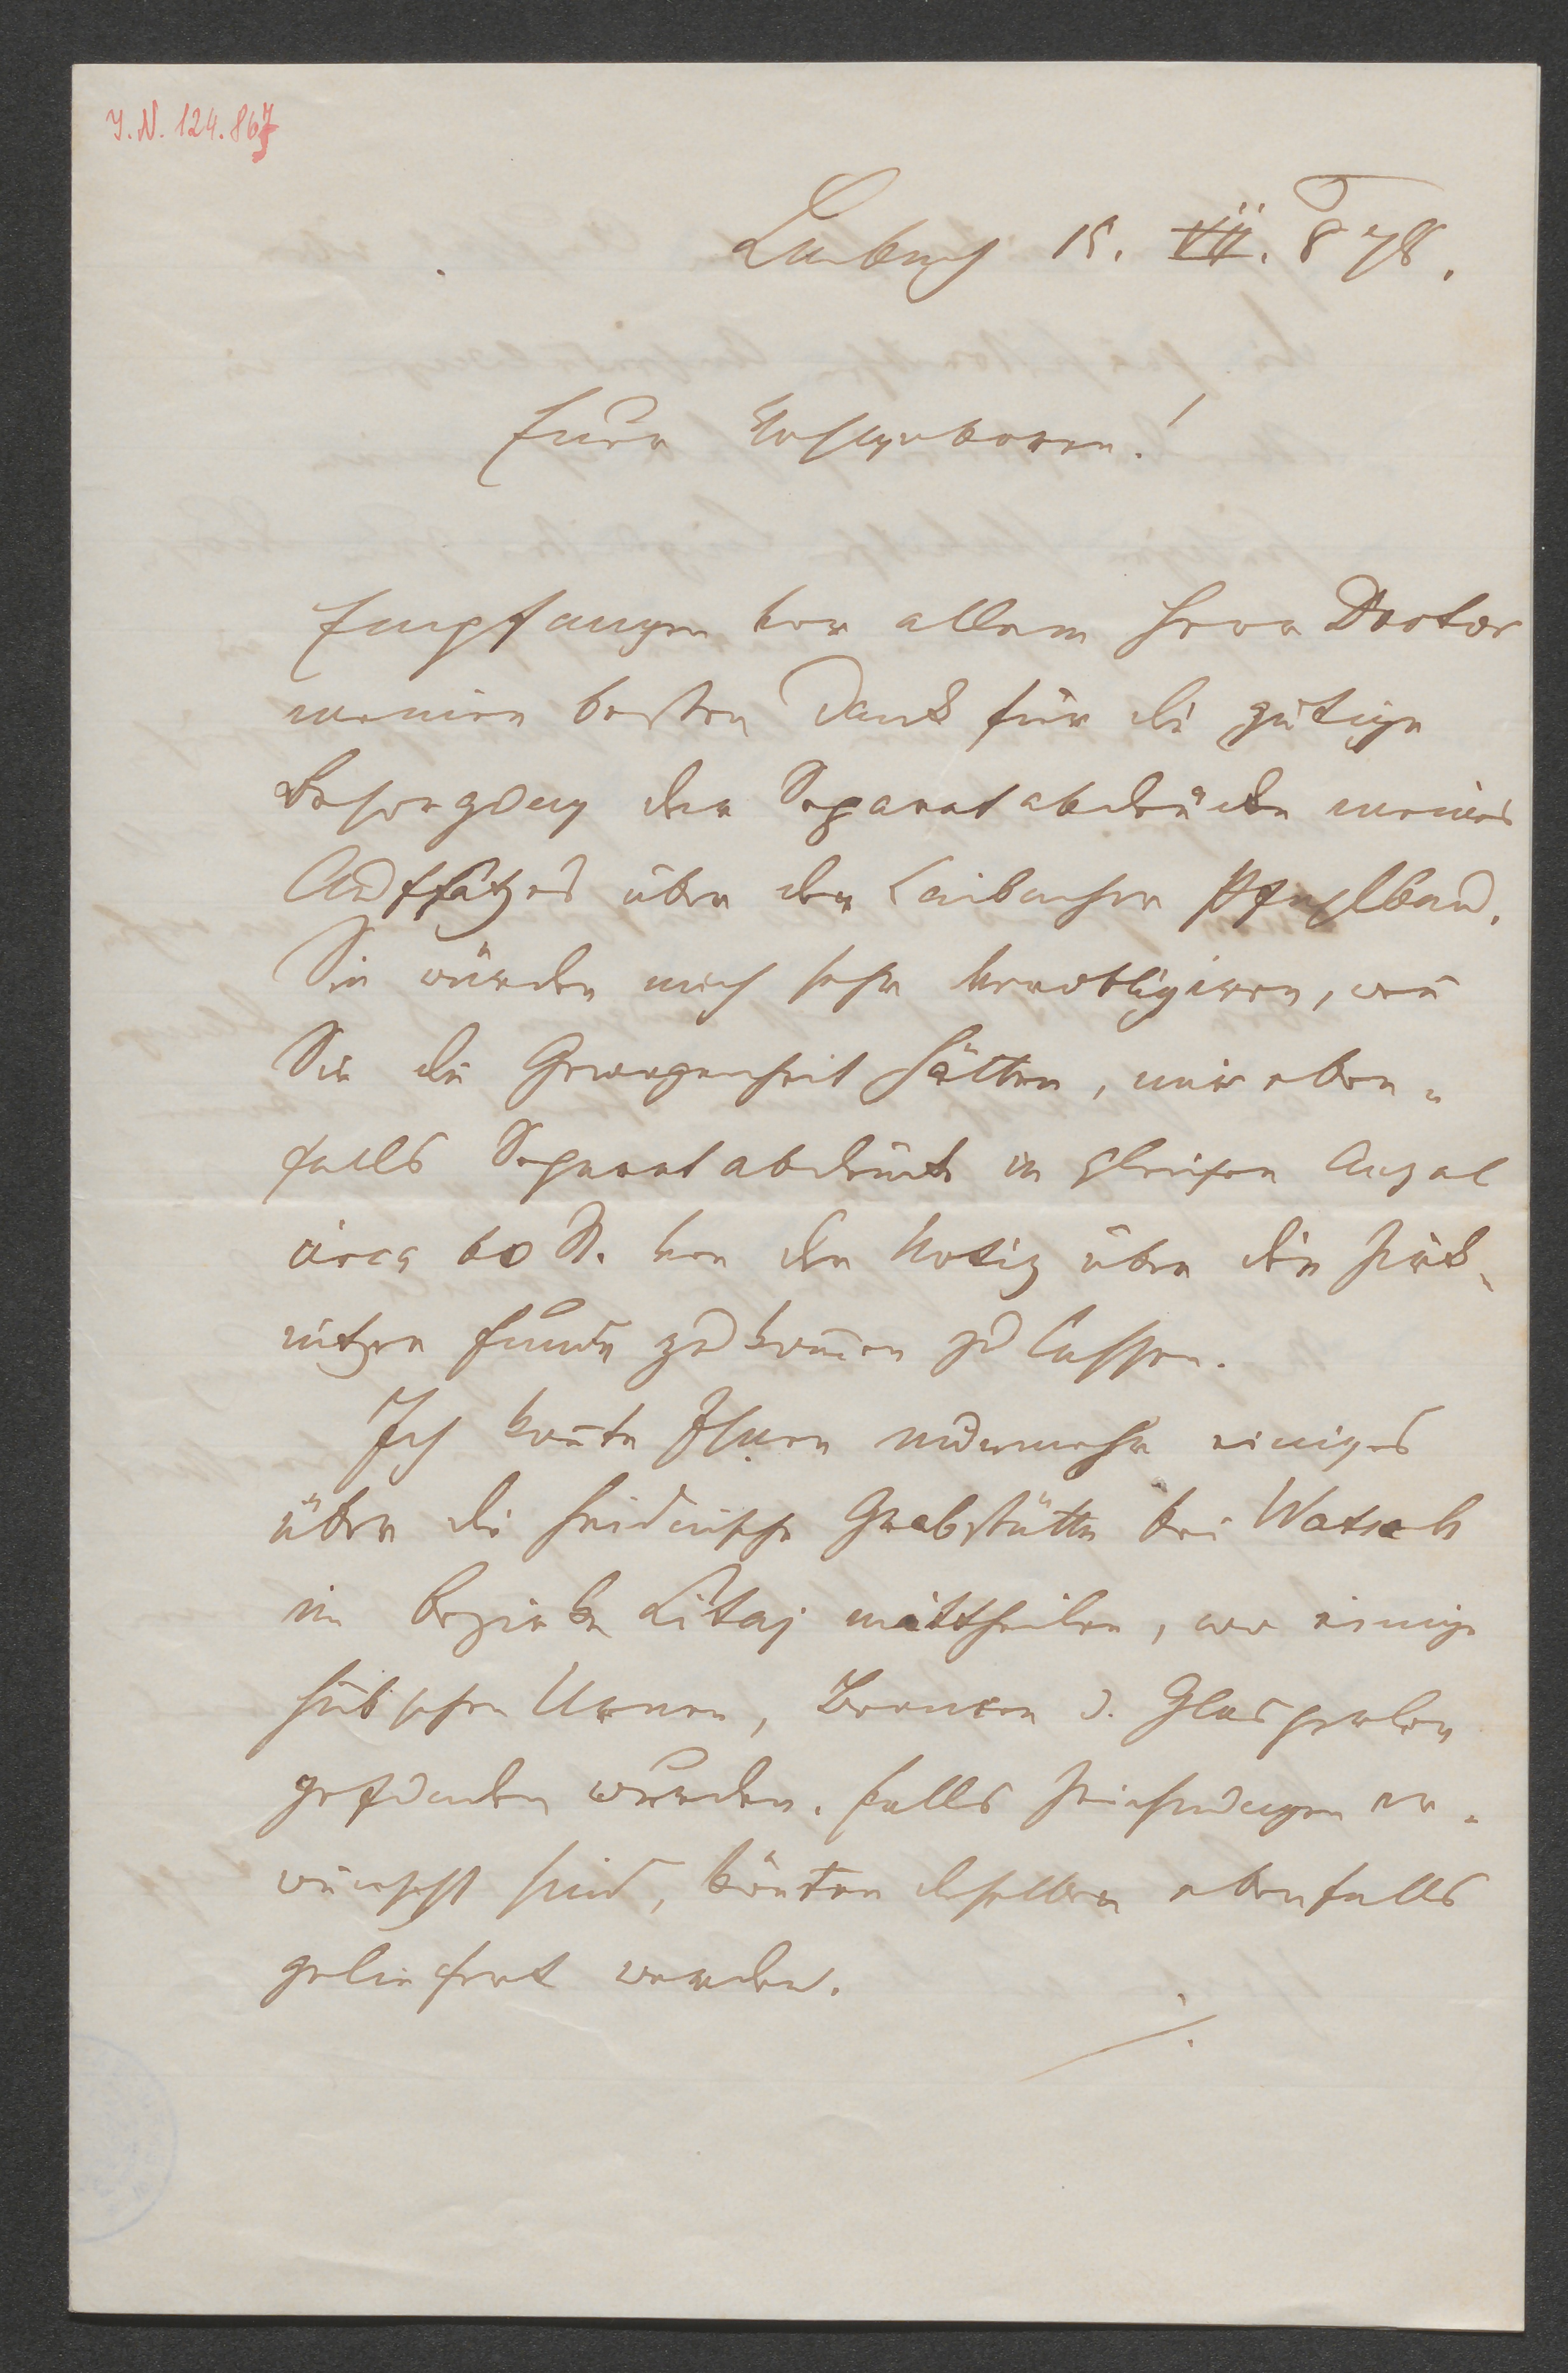 I.N. 124.867
Laibach 15. VII. 878.
Euer Wohlgeboren!
Empfangen vor allem Herr Doctor
meinen besten Dank für die gütige
Besorgung der Separatabdrücke meines
Aufsatzes über den Laibacher Pfahlbau.
Sie würden mich sehr verobligiren, wen̄
Sie die Gewogenheit hätten, mir eben-
falls Separatabdrücke in gleicher Anzal
circa 60 St. von der Notiz über die Zirk-
nitzer Funde zukom̄en zu lassen.
Ich kön̄te Ihnen nunmehr einiges
über die heidnische Grabstätte bei Watsch
im Bezirke Litaj mittheilen, wo einige
hübschen Urnen, Broncen u. Glasperlen
gefunden wurden. Falls Zeichnungen er-
wünscht sind, kön̄ten dieselben ebenfalls
geliefert werden.
./.